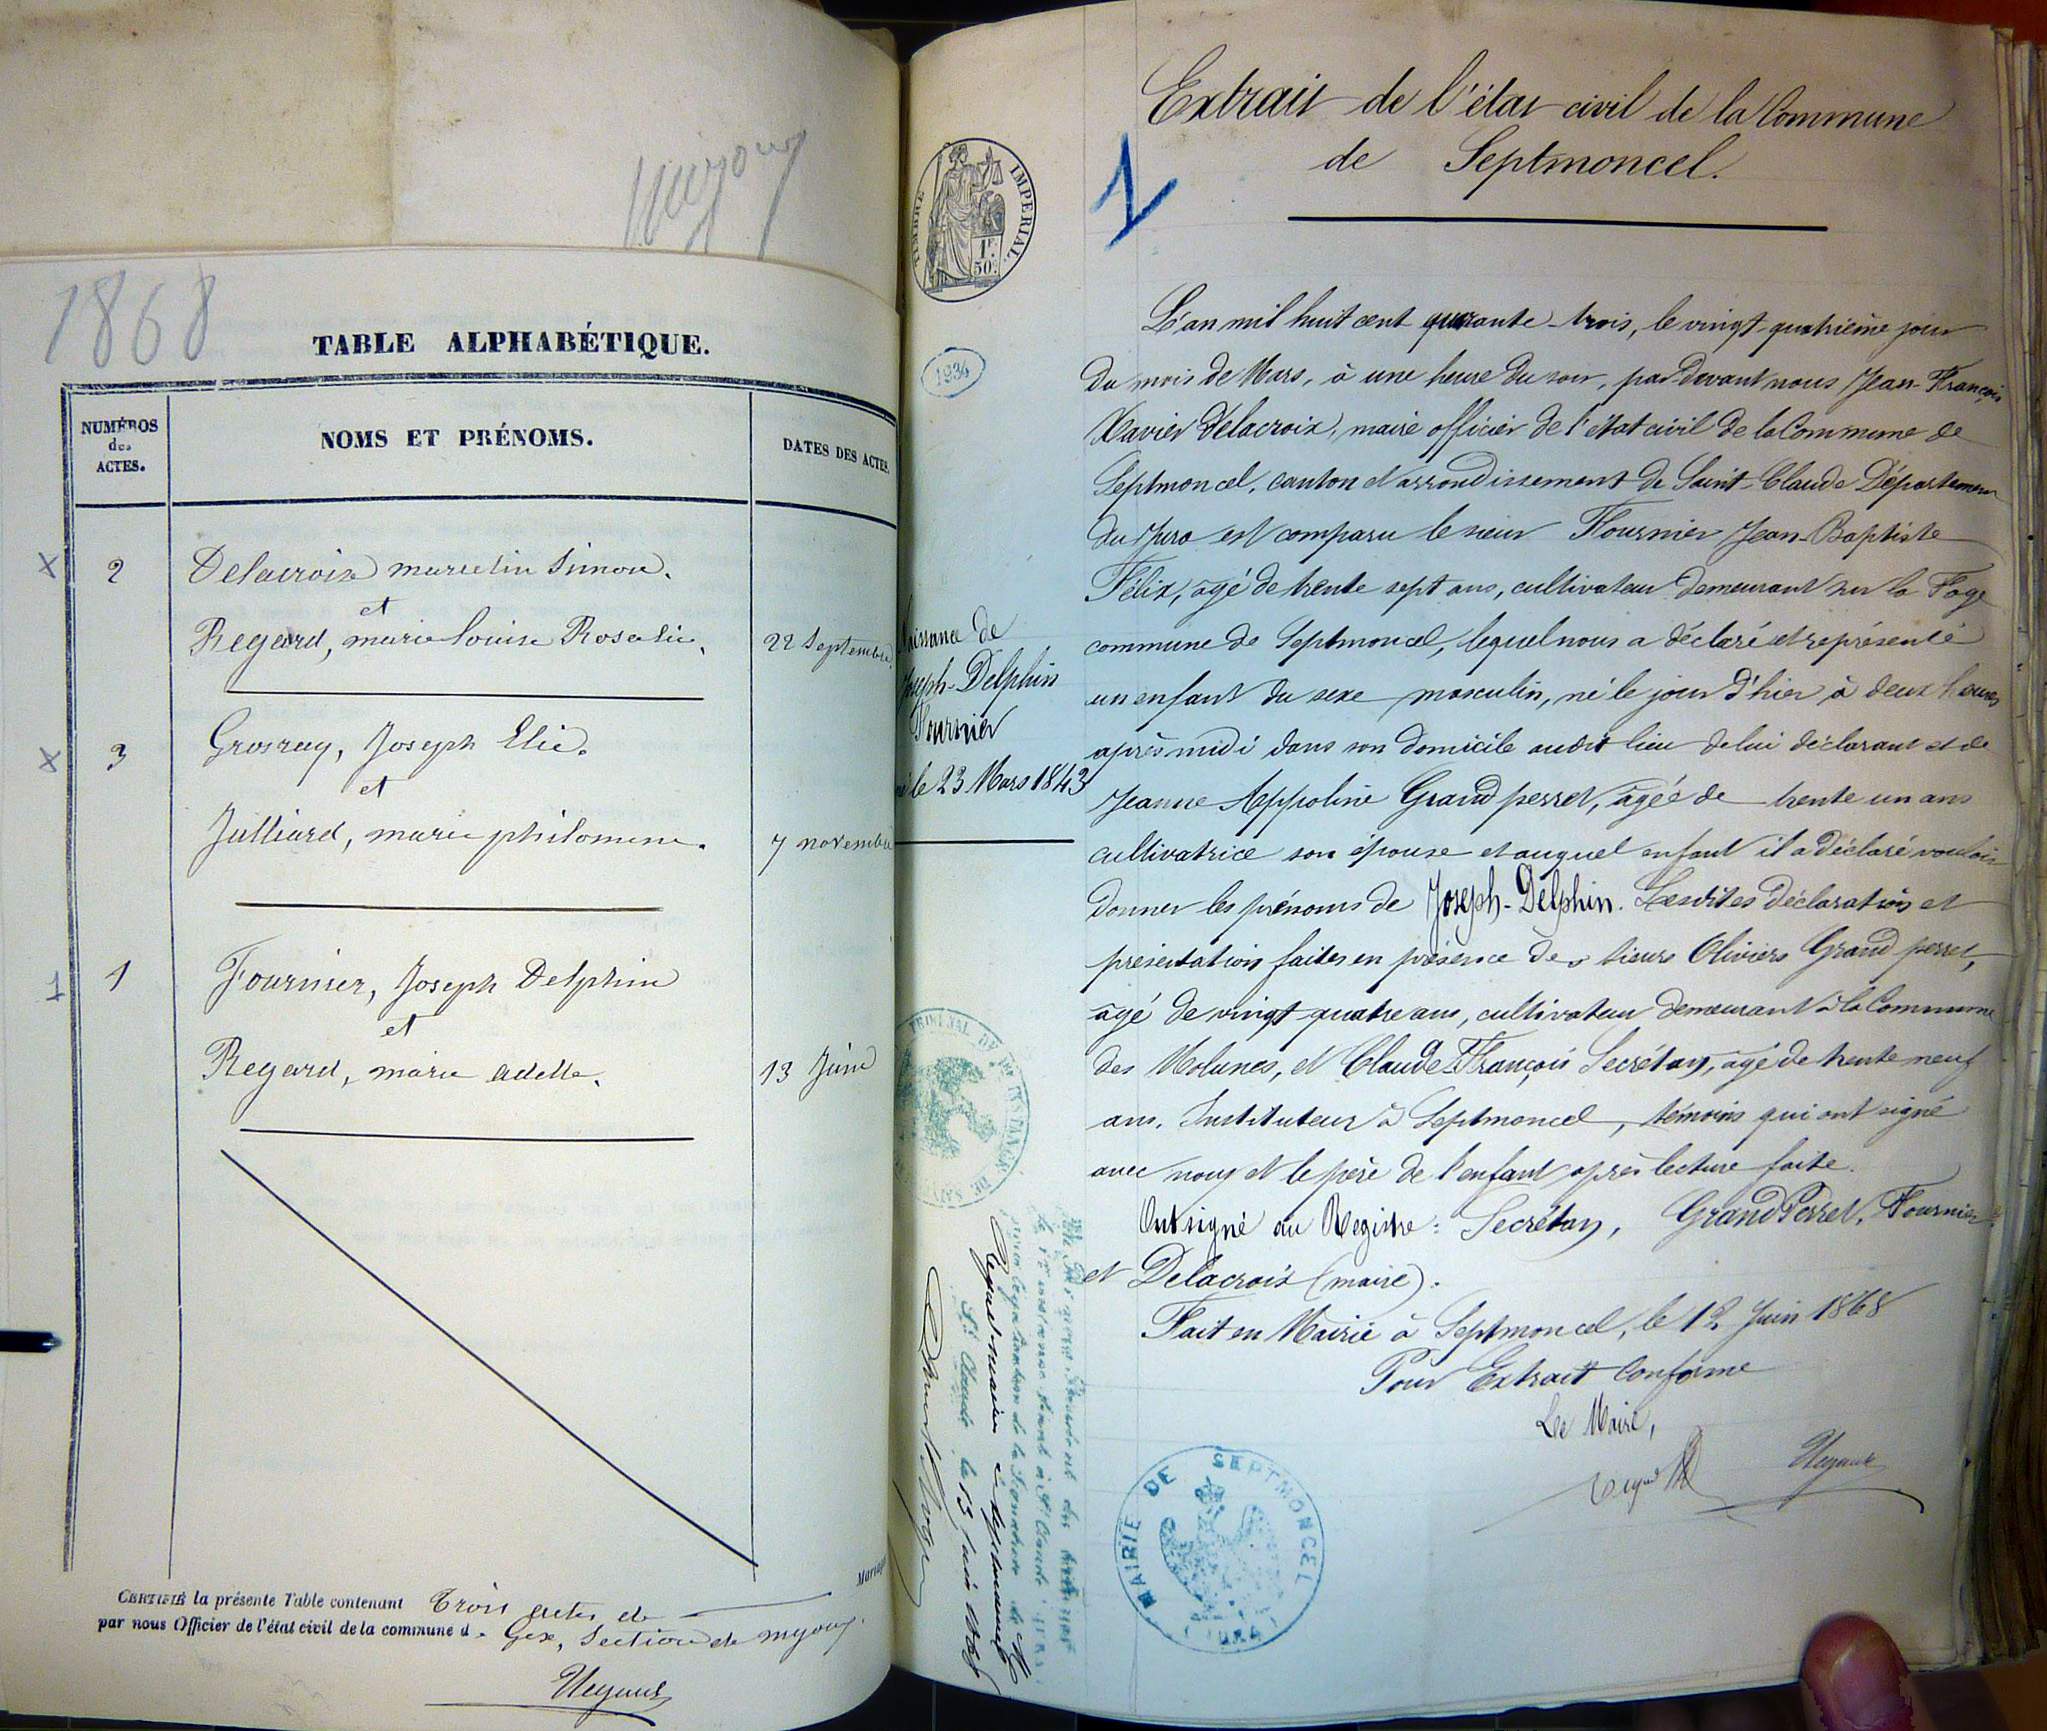 myoux
1868
TABLE ALPHABÉTIQUE.
NUMÉROS
des
ACTES.
NOMS ET PRÉNOMS.
DATES DES ACTES.
x 2 Delacroix marcelin Simon.
et
Regard, marie louise Rosalie. 22 Septembre
x 3 Grosray, Joseph Elie.
et
Julliard, marie philomene. 7 novembre
1 Fournier, Joseph Delphin
et
Regard, marie adelle. 13 Juin
CERTIFIÉ la présente Table contenant Trois actes de
par nous Officier de l'état civil de la commune d. Gex, Section de myoux.
Mariag
Extrait de l'état civil de la Commune
de Septmoncel.
1
TIMBRE IMPERIAL.
1F.
50c.
1234
L'an mil huit cent quarante-trois, le vingt-quatrième jour
du mois de Mars, à une heure du soir, par devant nous Jean-François
Xavier Delacroix, maire officier de l'état civil de la Commune de
Septmoncel, canton et arrondissement de Saint-Claude Département
du Jura est comparu le sieur Fournier Jean-Baptiste
Félix, âgé de trente sept ans, cultivateur demeurant sur la Foge
commune de Septmoncel, lequel nous a déclaré et représenté
un enfant du sexe masculin, né le jour d'hier à deux heures
après midi dans son domicile audit lieu de lui déclarant et de
Jeanne Appoline Grandperret, âgée de trente un ans
cultivatrice son épouse et auquel enfant il a déclaré vouloir
donner les prénoms de Joseph-Delphin. Lesdites déclaration et
présentation faites en présence des sieurs Oliviers Grand perret,
âgé de vingt-quatre ans, cultivateur demeurant à la Commune
des Molunes, et Claude François Secrétan, âgé de trente neuf
ans. Instituteur à Septmoncel, témoins qui ont signé
avec nous et le père de l'enfant après lecture faite.
Ont signé au Registre : Secrétan, GrandPerret, Fournier
et Delacroix (maire).
Fait en Mairie à Septmoncel, le 12 Juin 1868
Pour Extrait Conforme
Le Maire,
Naissance de
Joseph-Delphin
Fournier
né le 23 Mars 1843
TRIBUNAL DE PRE INSTANCE
MAIRIE DE SEPTMONCEL
(JURA)
légalisation de la Signature de M
maire à Septmoncel
St Claude le 13 juin 1868